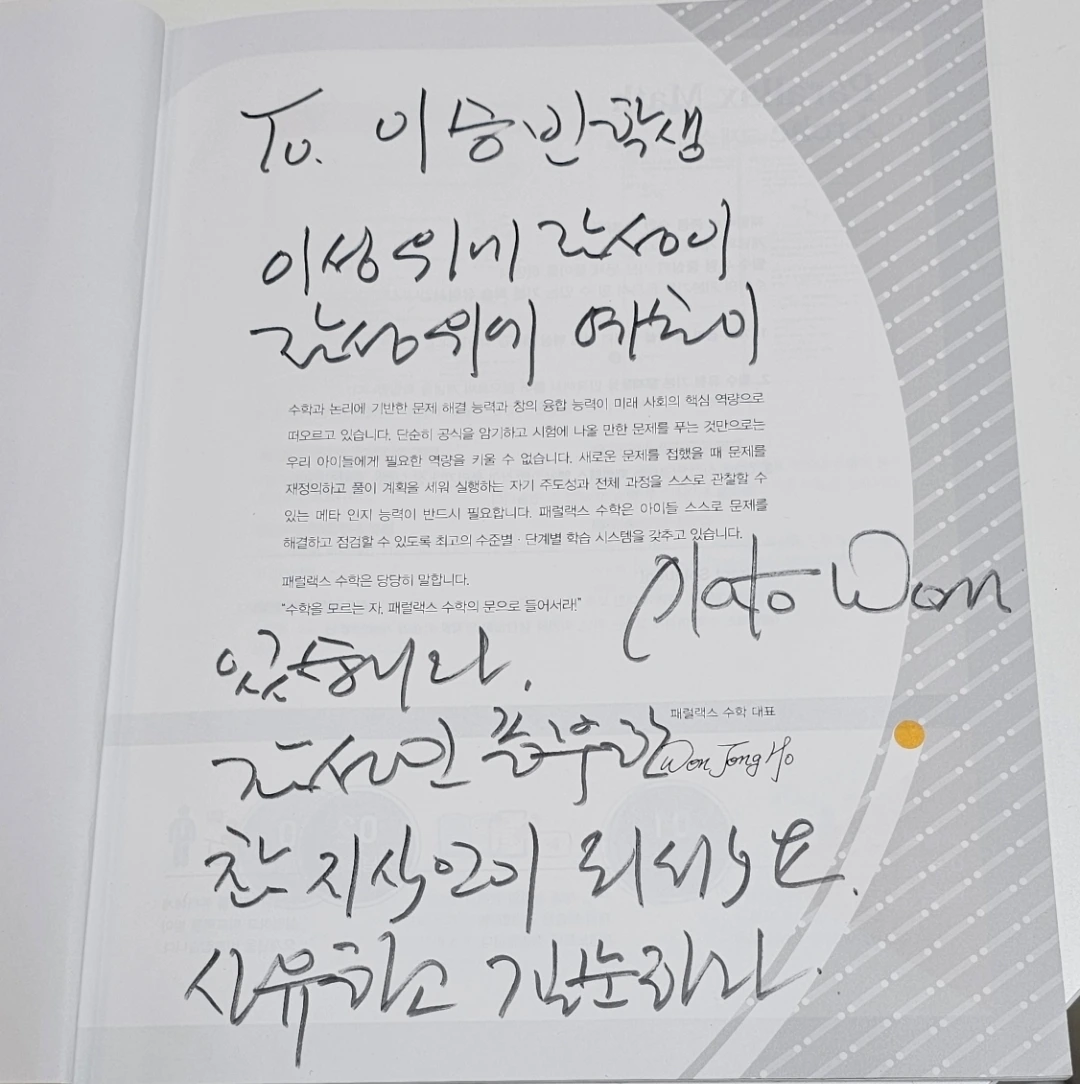 To. 이승빈 학생
이성 위에 감성이
감성 위에 예술이
수학과 논리에 기반한 문제 해결 능력과 창의 융합 능력이 미래 사회의 핵심 역량으로
떠오르고 있습니다. 단순히 공식을 암기하고 시험에 나올 만한 문제를 푸는 것만으로는
우리 아이들에게 필요한 역량을 키울 수 없습니다. 새로운 문제를 접했을 때 문제를
재정의하고 풀이 계획을 세워 실행하는 자기 주도성과 전체 과정을 스스로 관찰할 수
있는 메타 인지 능력이 반드시 필요합니다. 패럴랙스 수학은 아이들 스스로 문제를
해결하고 점검할 수 있도록 최고의 수준별·단계별 학습 시스템을 갖추고 있습니다.
패럴랙스 수학은 당당히 말합니다.
“수학을 모르는 자, 패럴랙스 수학의 문으로 들어서라!”
Plato Won
있습니다.
패럴랙스 수학 대표
감성이 풍부한
Won Jong Ho
참 지식인이 되세요.
사유하고 질문하라.